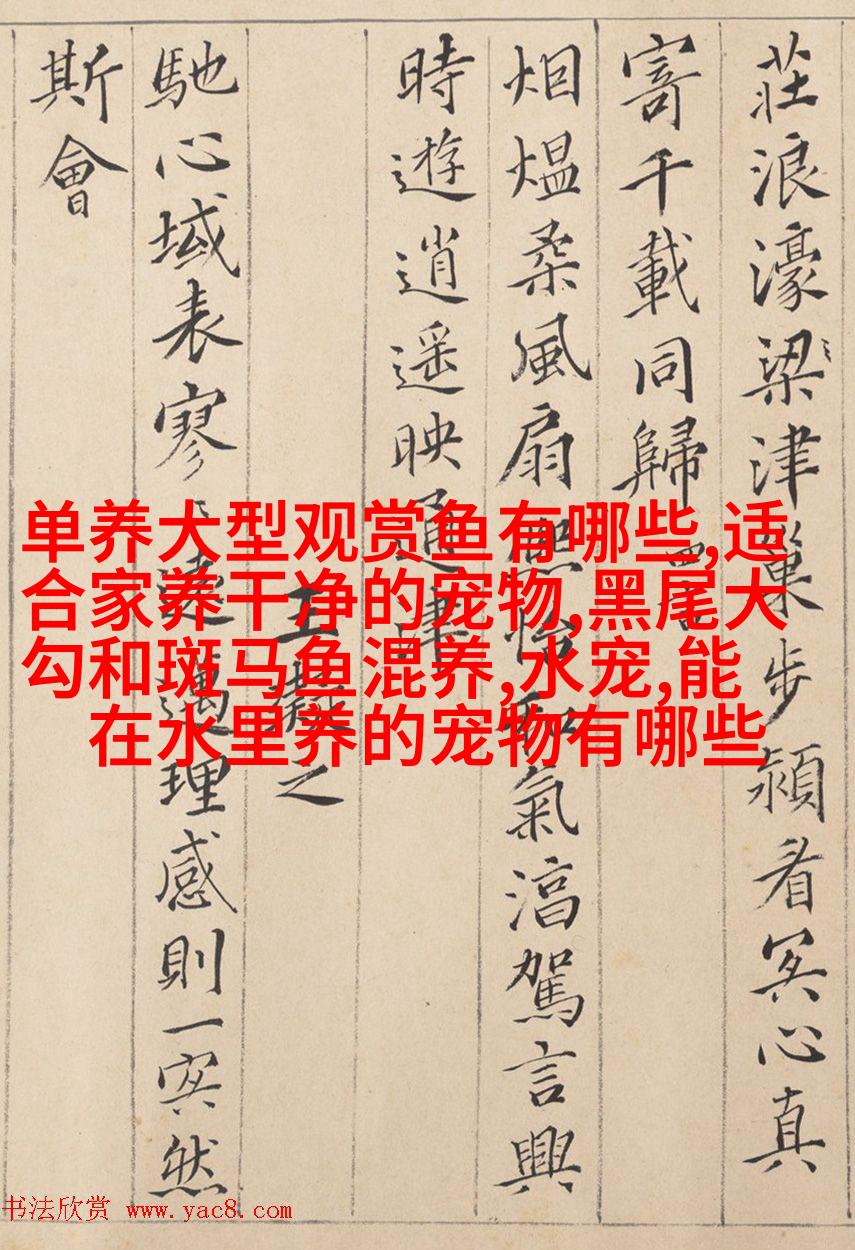 莊浪濠梁津巢步潁看冥心真
寄千載同歸
烟熅柔風扇
和氣淯駕言興
時遊逍遥映通津
王凝之
馳心域表寥〻遠邁理感則一冥然
斯會
单养大型观赏鱼有哪些,适
合家养干净的宠物,黑尾大
勾和斑马鱼混养,水宠,能
在水里养的宠物有哪些
书法欣赏 www.yac8.com